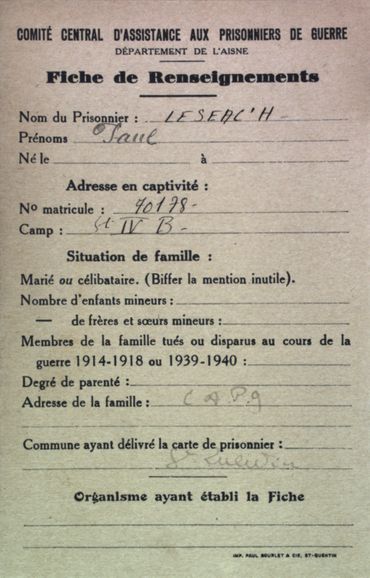 COMITÉ CENTRAL D'ASSISTANCE AUX PRISONNIERS DE GUERRE
DÉPARTEMENT DE L'AISNE
Fiche de Renseignements
Nom du Prisonnier : LESEAC'H
Prénoms Paul
Né le à
Adresse en captivité :
No matricule : 70178
Camp : St IV B
Situation de famille :
Marié ou célibataire. (Biffer la mention inutile).
Nombre d'enfants mineurs :
— de frères et sœurs mineurs :
Membres de la famille tués ou disparus au cours de la
guerre 1914-1918 ou 1939-1940 :
Degré de parenté :
Adresse de la famille : C A.P.G
Commune ayant délivré la carte de prisonnier :
St Quentin
Organisme ayant établi la Fiche
IMP. PAUL BOURLET & CIE, ST-QUENTIN